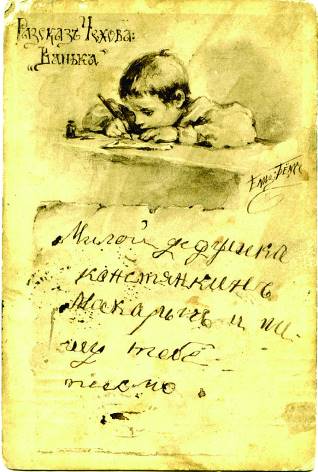 Разсказъ Чехова:
„Ванька“
Елис: Бёмъ
Милой дедушка
канстянкинъ
Макарычъ и пи-
шу тебе
писмо.